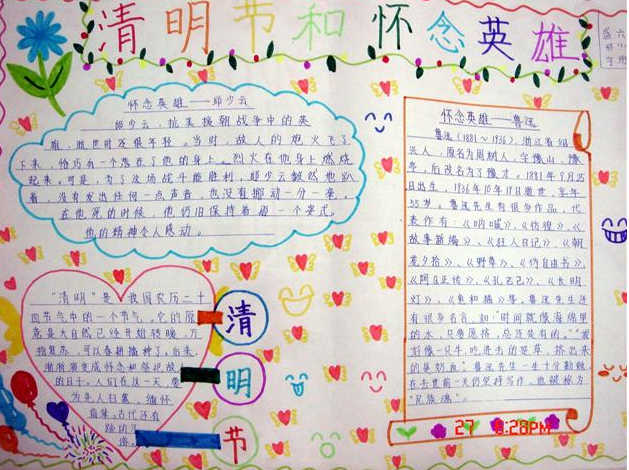 清明节和怀念英雄
怀念英雄——邱少云
邱少云,抗美援朝战争中的英
雄,逝世时还很年轻。当时,敌人的炮火飞了
下来,恰巧有一个落在了他的身上。烈火在他身上燃烧
起来。可是,为了这场战斗能胜利,邱少云毅然地趴
着,没有发出任何一点声音,也没有挪动一分一毫。
在他死的时候,他仍旧保持着这一个姿式。
他的精神令人感动。
怀念英雄——鲁迅
鲁迅(1881~1936),浙江省绍
兴人,原名为周树人,字豫山,豫
亭,后改名为了豫才,1881年9月25
日出生,1936年10月19日逝世,享年
55岁。鲁迅先生有很多作品,代
表作有:《呐喊》、《彷徨》、《
故事新编》、《狂人日记》、《朝
花夕拾》、《野草》、《伪自由书》、
《阿Q正传》、《孔乙己》、《长明
灯》、《兔和猫》等,鲁迅先生还
有很多名言,如:"时间就像海绵里
的水,只要愿挤,总还是有的。""我
好像一只牛,吃进去的是草,挤出来
的是奶血。"鲁迅先生一生十分勤勉,
在去世前一天仍坚持写作。他被称为
"民族魂"。
"清明"是我国农历二十
四节气中的一个节气。它的原
意是大自然已经开始转暖,万
物复苏,可以春耕播种了。后来,
渐渐演变成怀念和祭祀故
的日子。人们在这一天要
为先人扫墓,缅怀
古代还有
踏的习
俗。
清
明
节
27 8:28PM